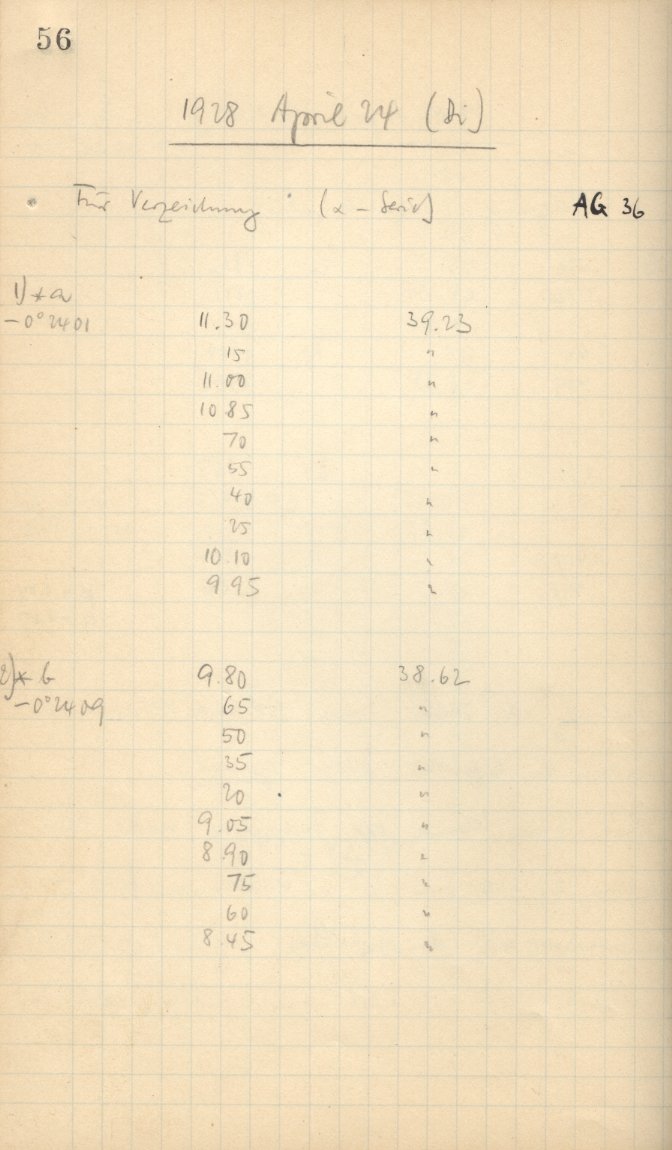 56
1928 April 24 (Di)
Für Verzeichnung (α - Serie) AG 36
1) * a
-0°2401 11.30 39.23
15 "
11.00 "
10 85 "
70 "
55 "
40 "
25 "
10.10 "
9 95 "
2) * b 9.80 38.62
-0°2409 65 "
50 "
35 "
20 "
9.05 "
8.90 "
75 "
60 "
8.45 "